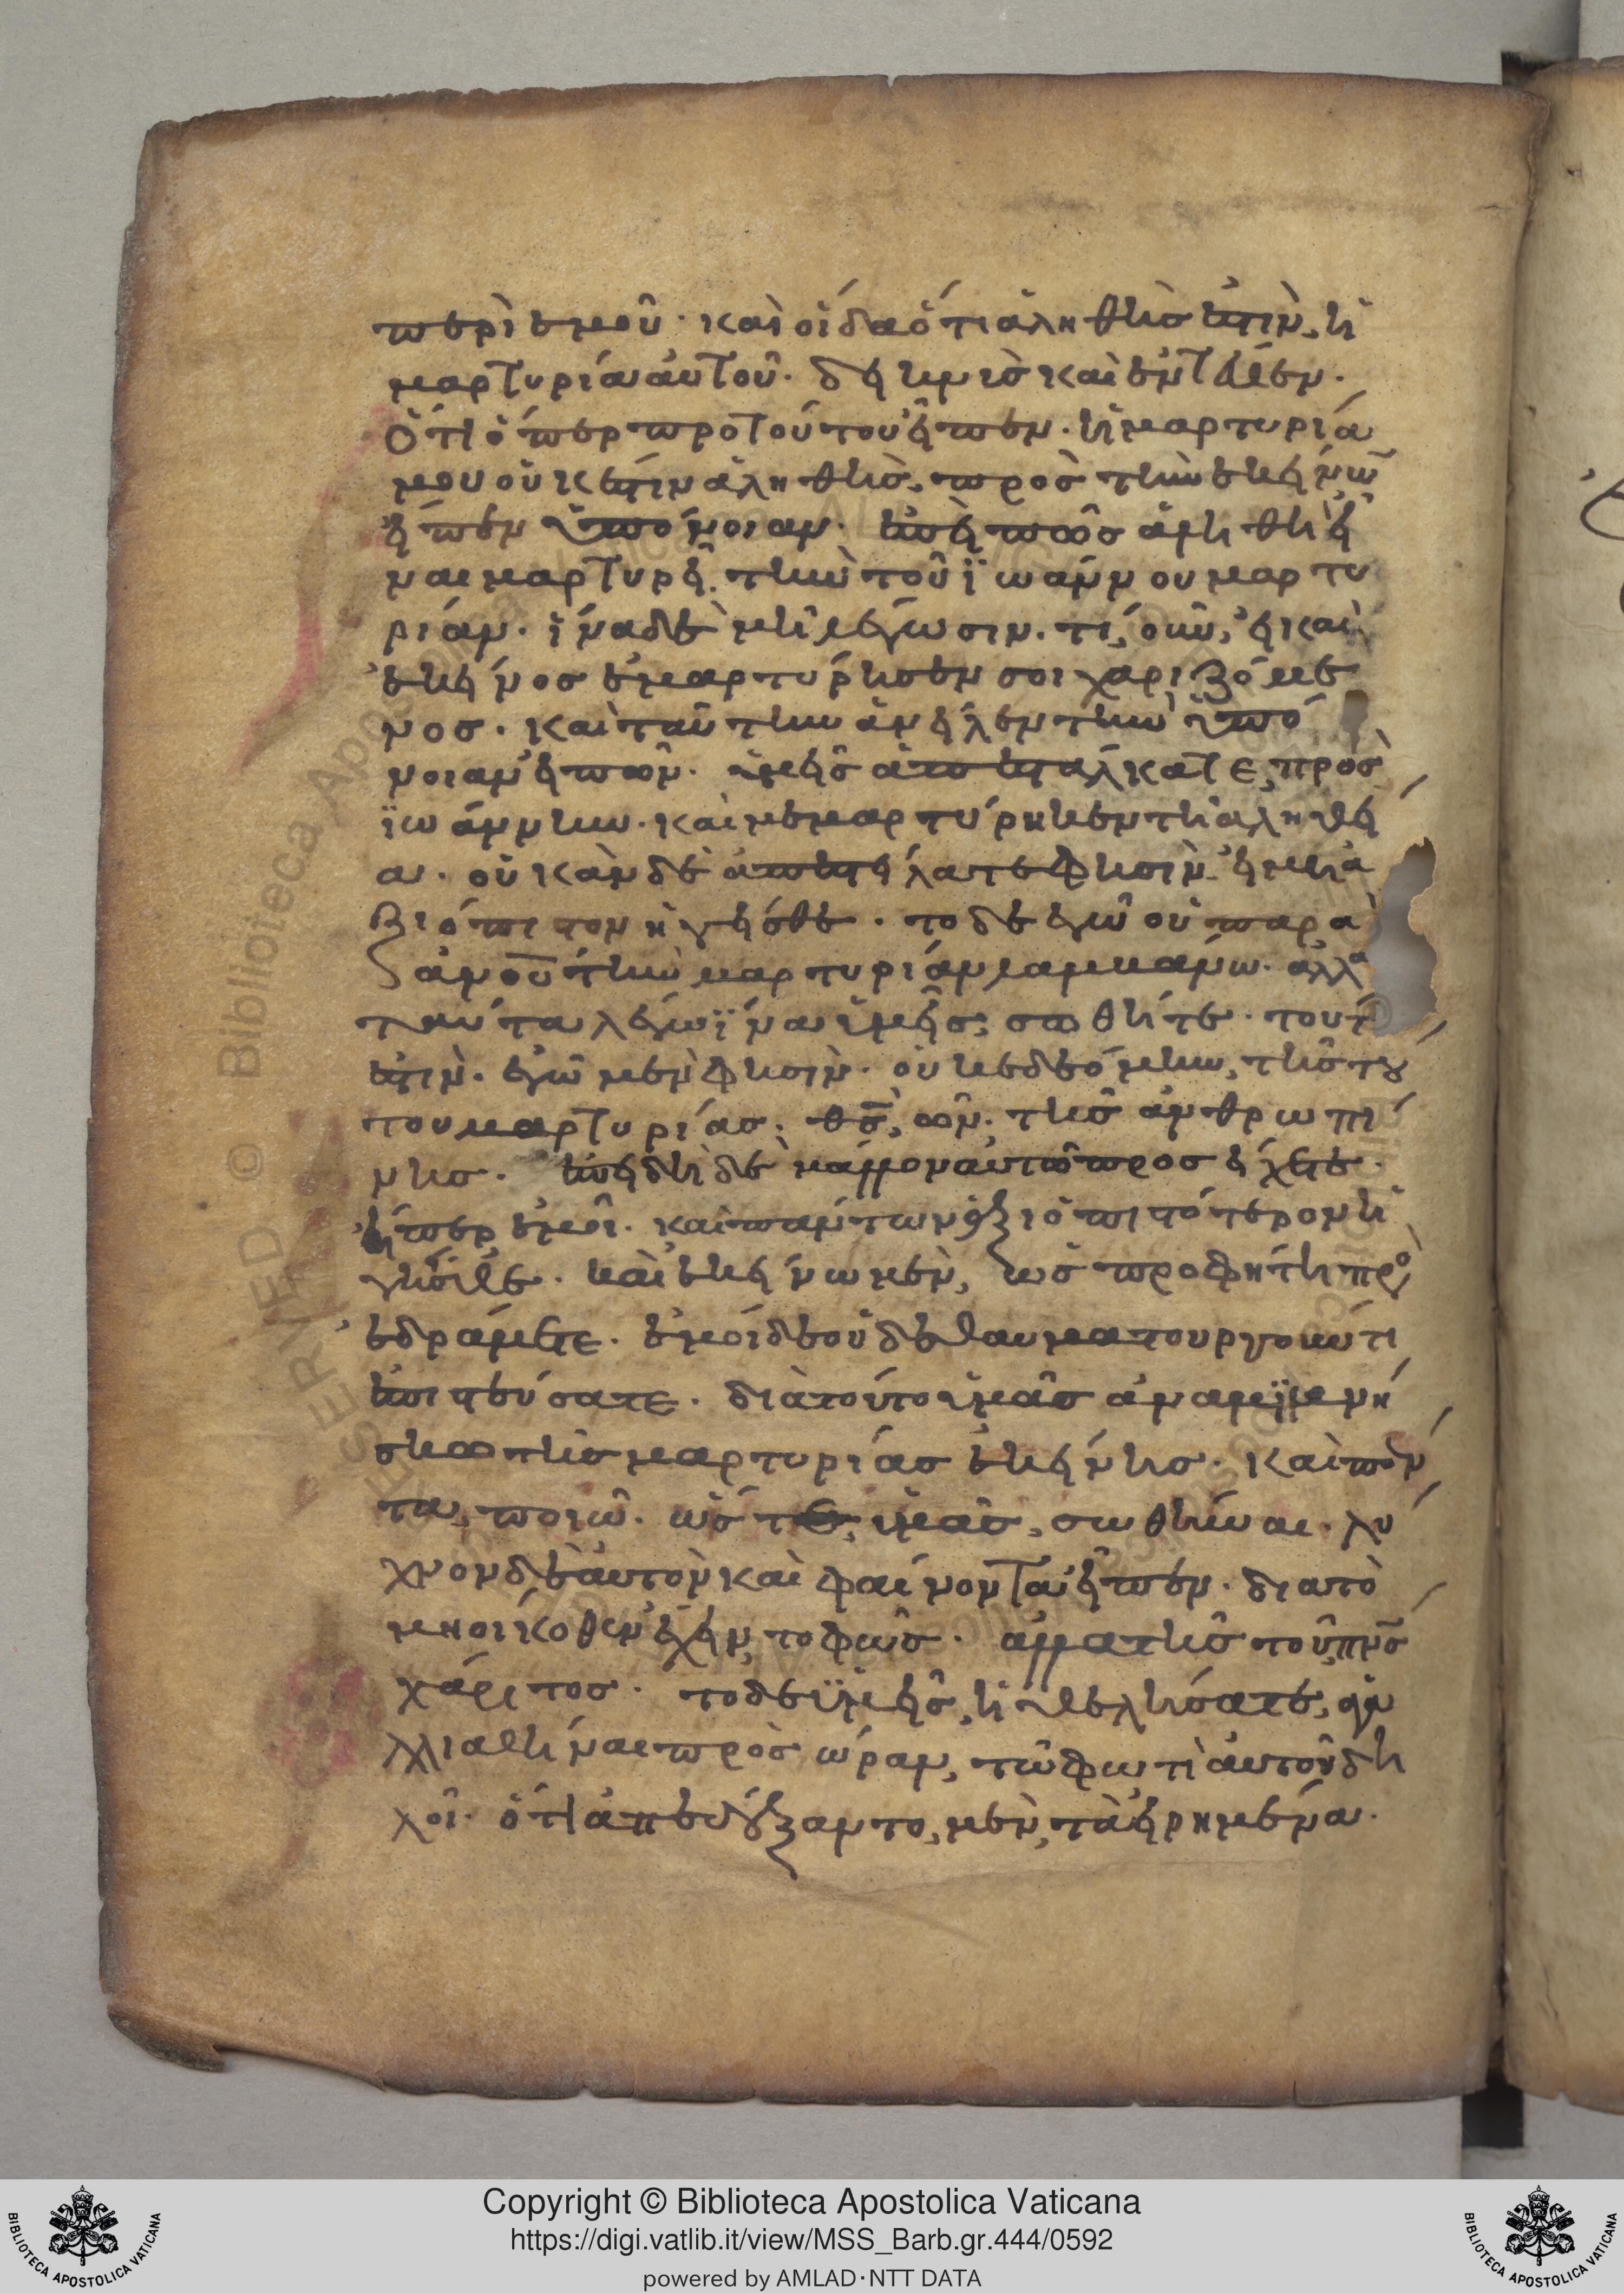 περὶ ἐμοῦ· καὶ οἶδα ὅτι ἀληθής ἐστιν, ἡ
μαρτυρία αὐτοῦ. δείκνυσι καὶ
Ὅτι ὅπερ πρὸ τούτου εἶπεν· ἡ μαρτυρία
μου οὐκ ἔστιν ἀληθής, πρὸς τὴν ἐκείνων
εἶπεν ὑπόνοιαν· ἐπεὶ πῶς ἀμὴ θειεῖ
ναι μαρτυρεῖ τὴν τοῦ ἰωάννου μαρτυ
ρίαν· ἵνα δὲ μὴ λέγωσιν. τί, οὖν, εἰ καὶ
ἐκεῖνος ἐμαρτύρησεν σοι χαριζόμε
νος· καὶ ταύτην ἀνεῖλεν τὴν ὑπό
νοιαν εἰπών· ὑμεῖς ἀπεστάλκατε, πρὸς
ἰωάννην· καὶ μεμαρτύρηκεν τῇ ἀληθεί
α· οὐκ ἂν δὲ ἀπεστείλατε φησὶν, εἰ μὴ ἀ
ξιόπιστον ἡγεῖσθε· τὸ δὲ ἐγὼ οὐ παρὰ
ἀνοῦ τὴν μαρτυρίαν λαμβάνω· ἀλλὰ
ταῦτα λέγω ἵνα ὑμεῖς, σωθῆτε· τουτ
έστιν· ἐγὼ μὲν φησὶν· οὐκ ἐδεόμην, τῆς τού
του μαρτυρίας· θς, ὢν· τῆς ἀνθρωπί
νης· ἐπειδὴ δὲ μᾶλλον αὐτῷ προσείχετε·
ἤπερ ἐμοί· καὶ πάντων ἀξιοπιστότερον ἡ
γεῖσθε· καὶ ἐκείνω μὲν, ὡς προφήτη προσ
εδράμετε· ἐμοὶ δὲ οὐδὲ θαυματουργοῦντι
ἐπιστεύσατε· διὰ τοῦτο ὑμᾶς ἀναμιμνή
σκω τῆς μαρτυρίας ἐκείνης· καὶ πάν
τα, ποιῶ· ὥστε, ὑμᾶς, σωθῆναι· λύ
χνον δὲ αὐτὸν καὶ φαίνοντα εἶπεν· διὰ τὸ
μὴ οἴκοθεν ἔχειν, τὸ φῶς· ἀλλὰ τῆς τοῦ πνς
χάριτος· τὸ δὲ ὑμεῖς, ἠθελήσατε, ἀγα
λλιαθῆναι πρὸς ὥραν, τῷ φωτὶ αὐτοῦ δη
λοῖ· ὅτι ἀπεδέξαντο, μὲν, τὰ εἰρημένα·
Copyright © Biblioteca Apostolica Vaticana
https://digi.vatlib.it/view/MSS_Barb.gr.444/0592
powered by AMLAD·NTT DATA